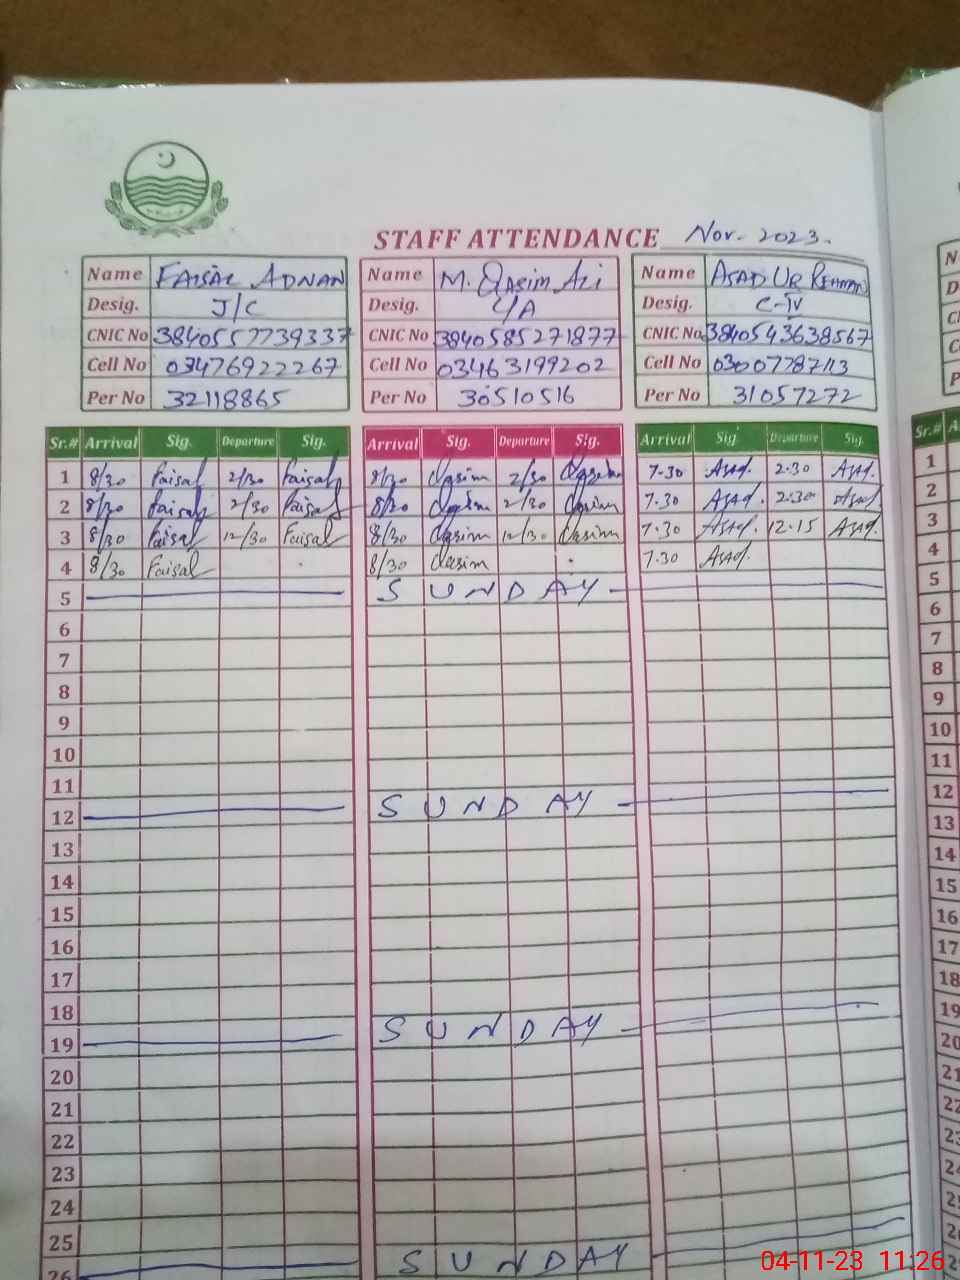 STAFF ATTENDANCE Nov. 2023.
Name FAISAL ADNAN Name M. Qasim Ali Name ASAD UR REHMAN
Desig. J/C Desig. Desig. C-IV
CNIC No 3840557739337 CNIC No 3840585271877 CNIC No. 3840543638567
Cell No 03476922267 Cell No 03463199202 Cell No 03007787113
Per No 32118865 Per No 30510516 Per No 31057272
Sr.# Arrival Sig. Departure Sig. Arrival Sig. Departure Sig. Arrival Sig. Departure Sig. Sr.#
1 8/30 Faisal 2/30 Faisal 8/30 Qasim 2/30 Qasim 7.30 Asad. 2.30 Asad. 1
2 8/30 Faisal 2/30 Faisal 8/30 Qasim 2/30 Qasim 7.30 Asad. 2.30 Asad 2
3 8/30 Faisal 12/30 Faisal 8/30 Qasim 12/30 Qasim 7.30 Asad. 12.15 Asad. 3
4 8/30 Faisal 8/30 Qasim 7.30 Asad. 4
5 SUNDAY 5
6 6
7 7
8 8
9 9
10 10
11 11
12 SUNDAY 12
13 13
14 14
15 15
16 16
17 17
18 18
19 SUNDAY 19
20 20
21 21
22 22
23 23
24 24
25 25
26 SUNDAY
04-11-23 11:26